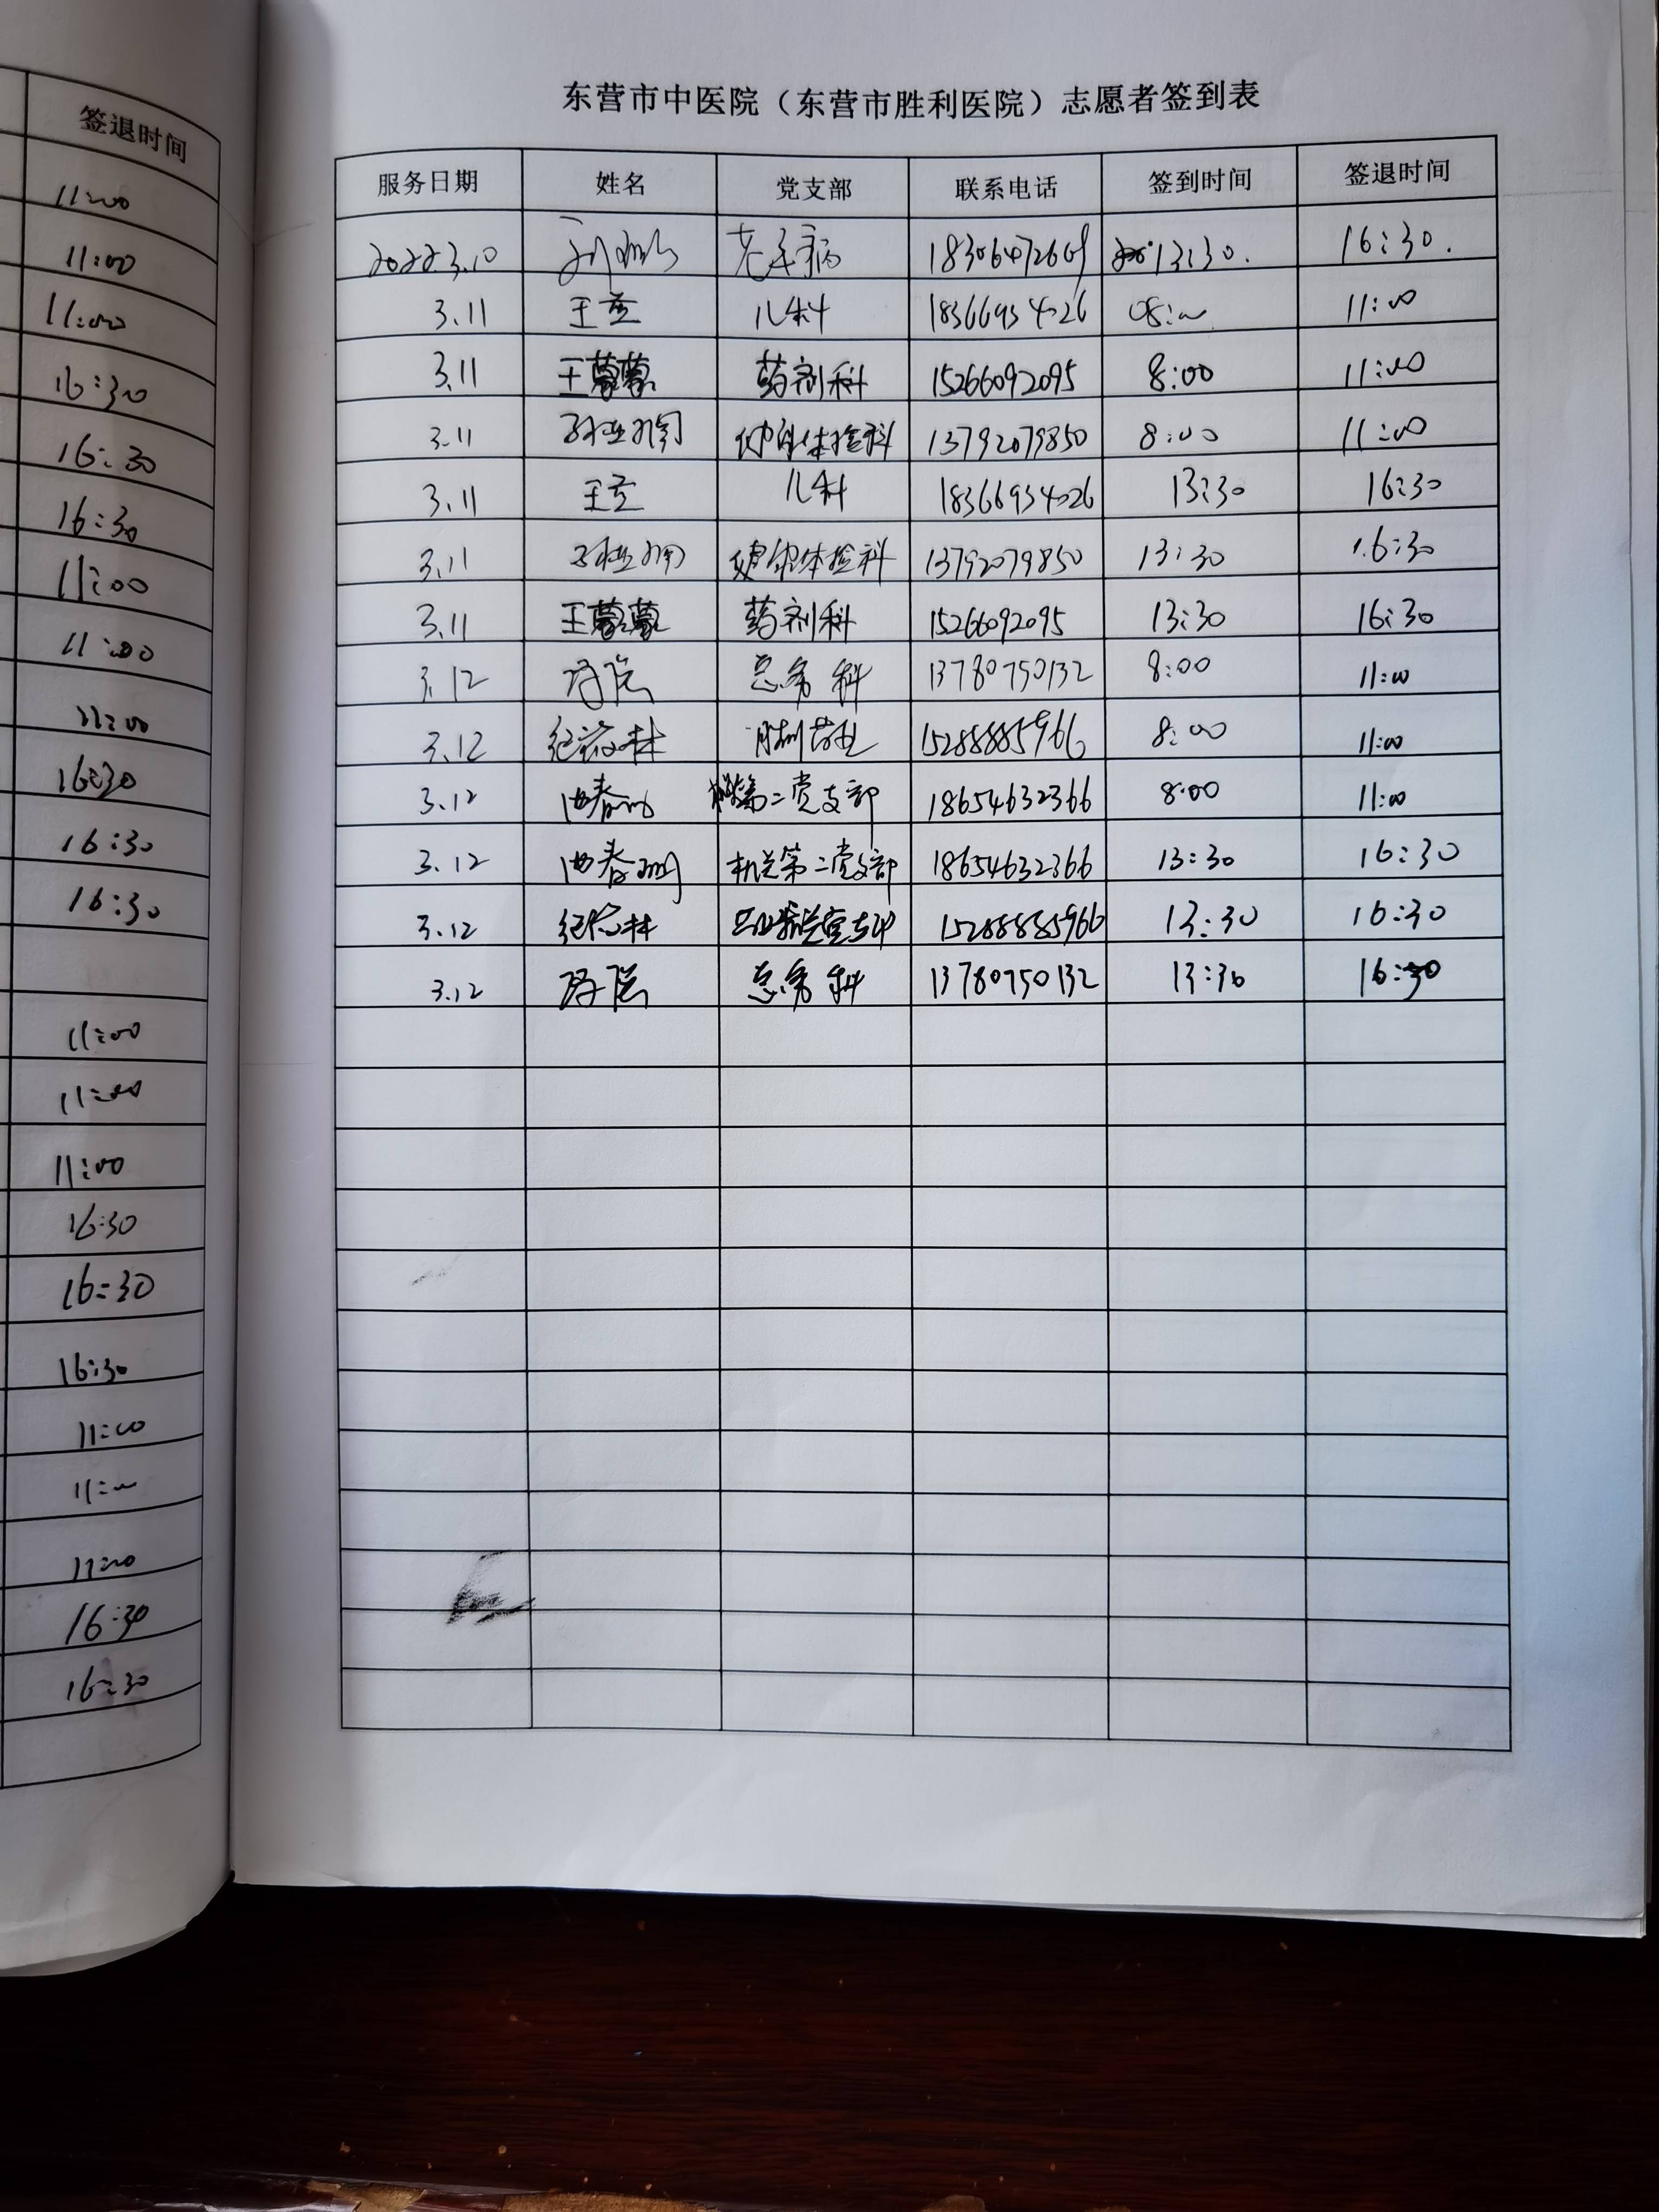 签退时间
11:00
11:00
11:00
16:30
16:30
16:30
11:00
11:00
11:00
16:30
16:30
16:30
11:00
11:00
11:00
16:30
16:30
16:30
11:00
11:00
11:00
16:30
16:30
东营市中医院（东营市胜利医院）志愿者签到表
服务日期 姓名 党支部 联系电话 签到时间 签退时间
2022.3.10 老年病 18306472609 13:30. 16:30.
3.11 儿科 18366934026 08:00 11:00
3.11 王蒙蒙 药剂科 15266092095 8:00 11:00
3.11 体检科 13792079850 8:00 11:00
3.11 儿科 18366934026 13:30 16:30
3.11 体检科 13792079850 13:30 16:30
3.11 王蒙蒙 药剂科 15266092095 13:30 16:30
3.12 总务科 13780750132 8:00 11:00
3.12 15288885966 8:00 11:00
3.12 第二党支部 18654632366 8:00 11:00
3.12 机关第二党支部 18654632366 13:30 16:30
3.12 15288885966 13:30 16:30
3.12 总务科 13780750132 13:30 16:30